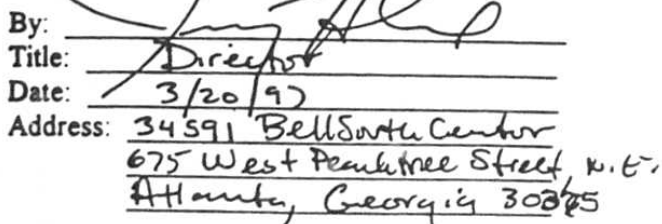 By:
Title: Director
Date: 3/20/97
Address: 34591 BellSouth Center
675 West Peachtree Street, N.E.
Atlanta, Georgia 30375